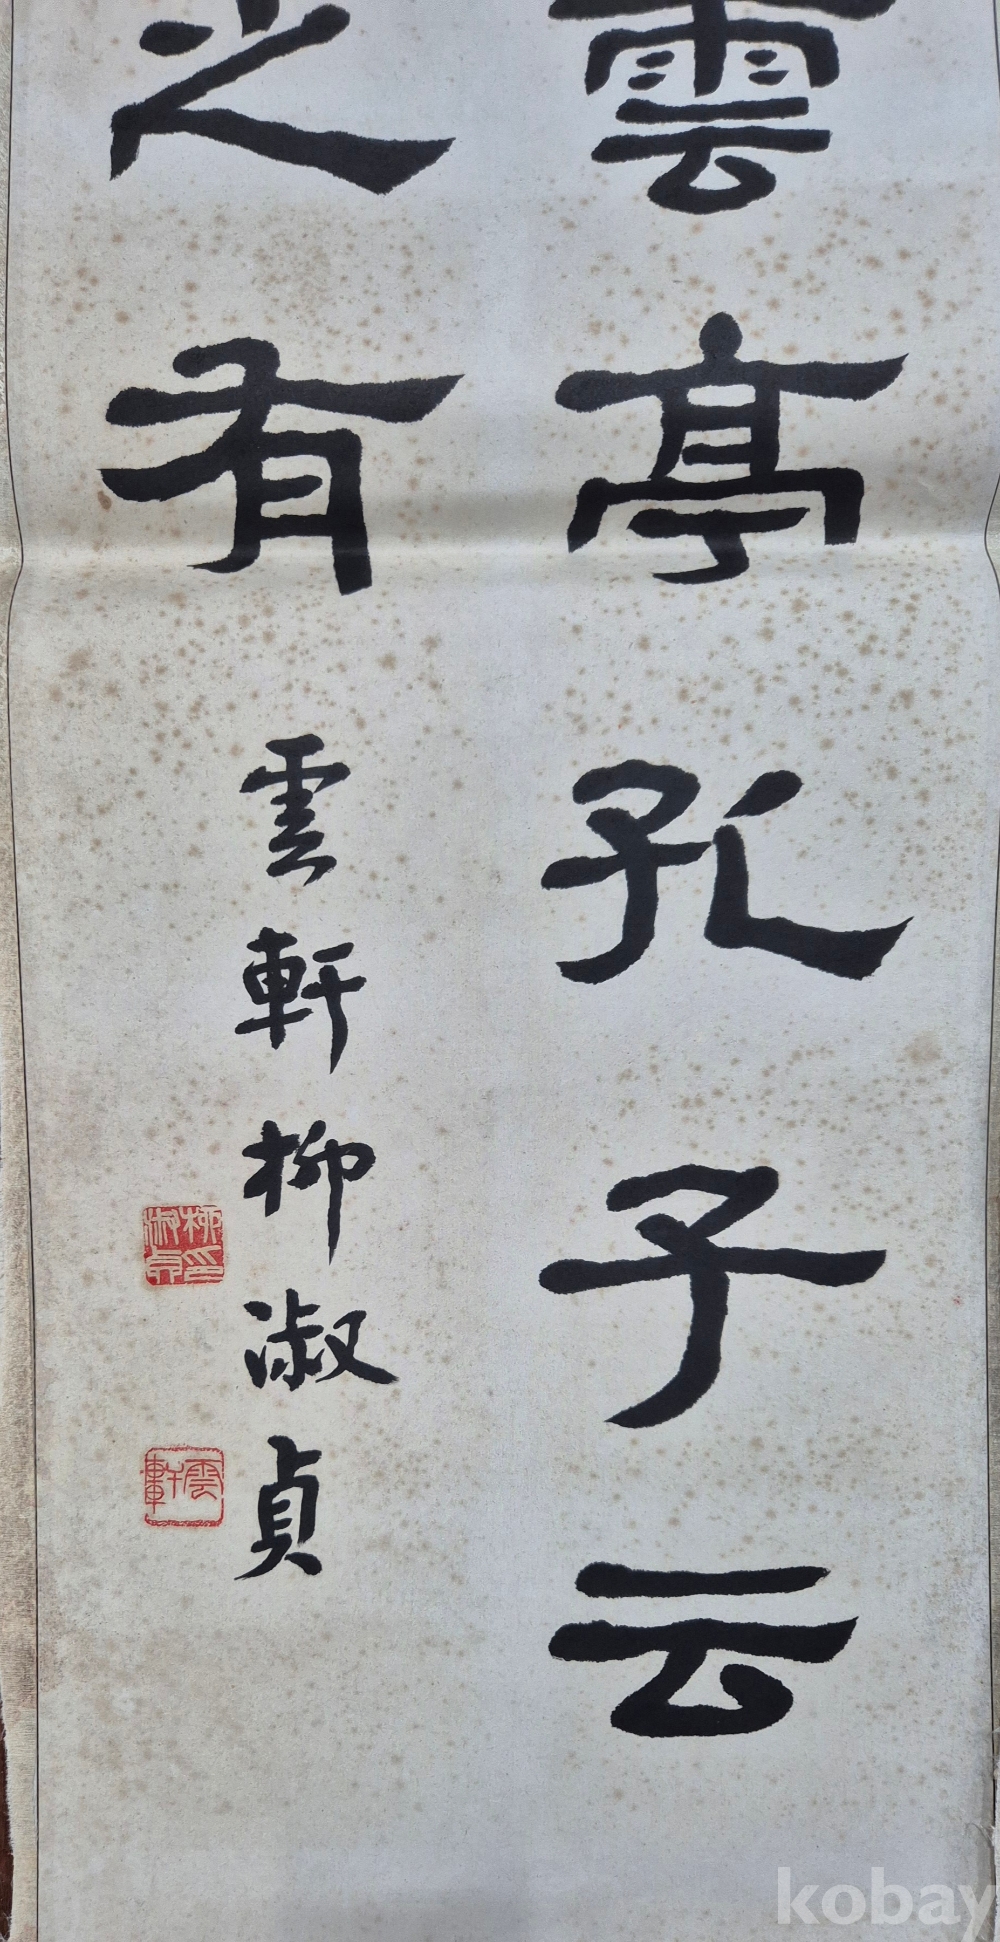 雲亭孔子云
之有
雲軒柳淑貞
柳淑貞印
雲軒
kobay